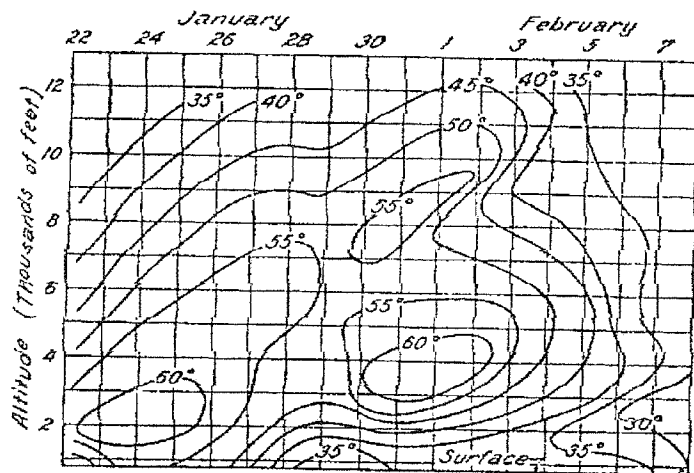 January February
22 24 26 28 30 1 3 5 7
Altitude (Thousands of feet)
12
10
8
6
4
2
35° 40° 45° 40° 35°
50°
55°
55°
55°
60°
60°
30°
35° Surface 35°